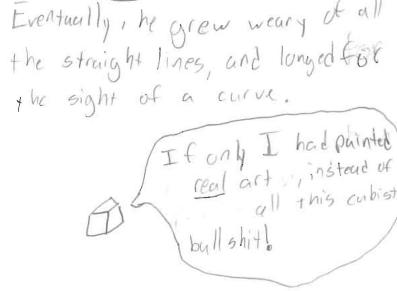 Eventually, he grew weary of all
the straight lines, and longed for
the sight of a curve.
If only I had painted
real art..., instead of
all this cubist
bullshit!